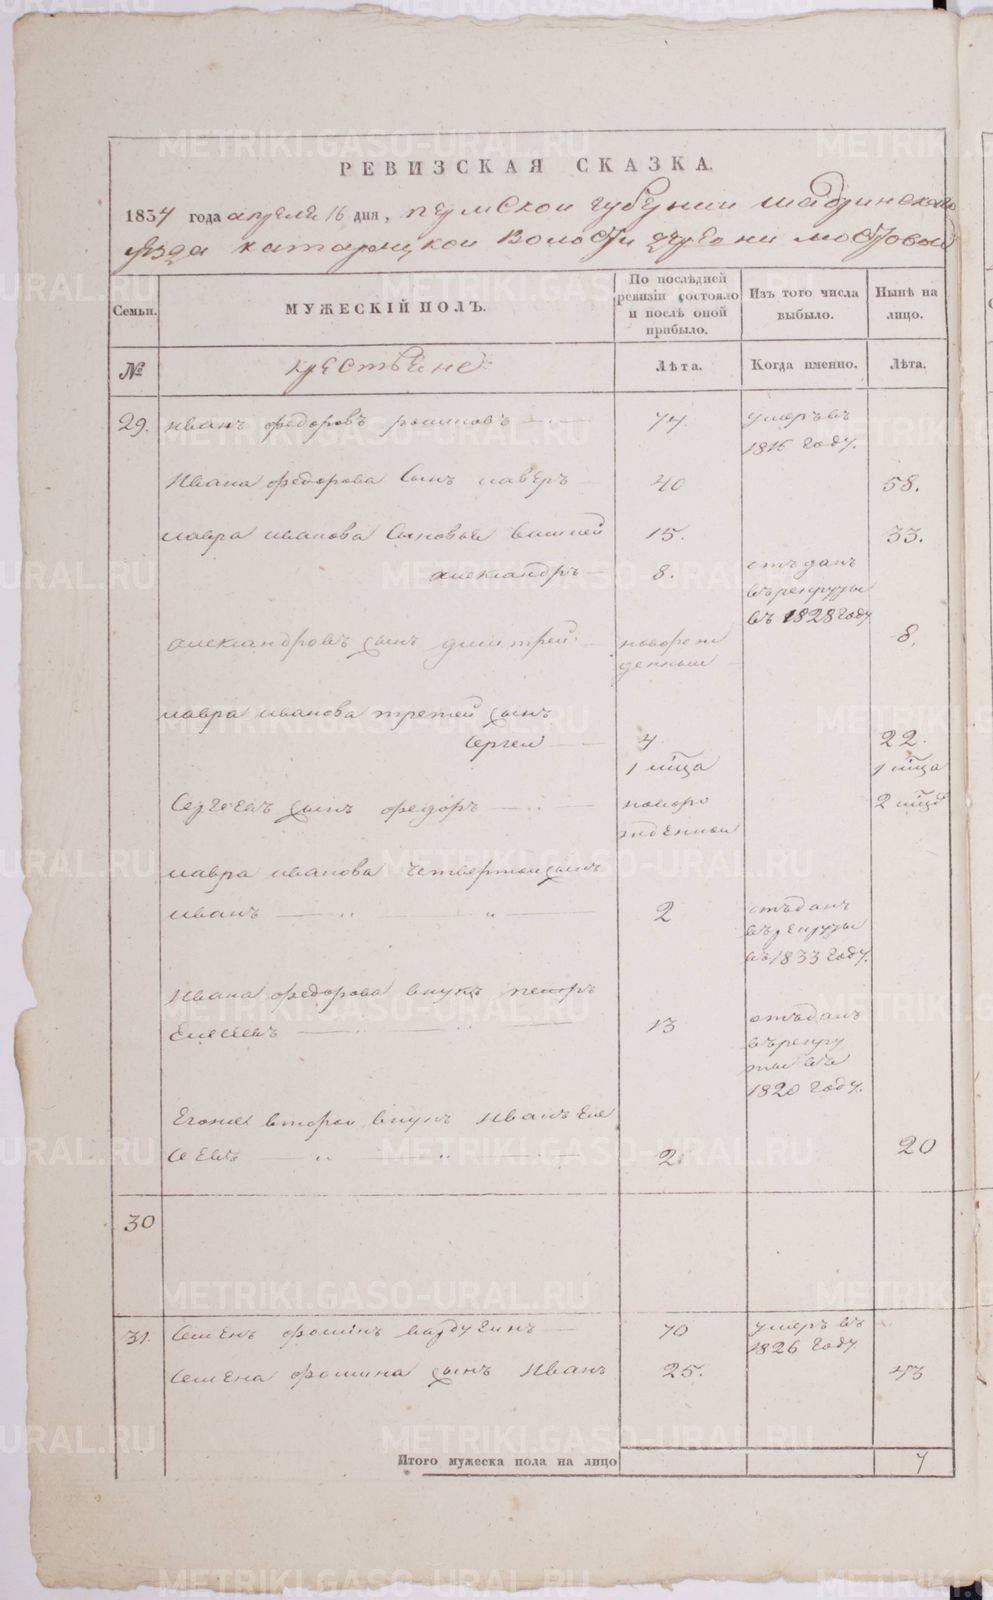 РЕВИЗСКАЯ СКАЗКА.
1834 года апреля 16 дня, пермской губернии шадринскаго
уезда катарацкой волости деревни мостовой
Семьи.
МУЖЕСКІЙ ПОЛЪ.
По послѣдней ревизіи состояло и послѣ оной прибыло.
Изъ того числа выбыло.
Нынѣ на лицо.
№
крестьяне
Лѣта.
Когда именно.
Лѣта.
29. иванъ федоровъ 74 умеръ въ
1816 году.
Ивана федорова сынъ лавѣръ 40 58.
лавра иванова сыновья 15. 33.
александръ 8. отъданъ
въ рекруты
въ 1828 году
александровъ сынъ дмитрей новорож 8.
денный
лавра иванова третей сынъ
сергей 4 22.
1 мца 1 мца
Сергѣевъ сынъ федоръ новоро 2 мца
жденной
лавра иванова четвертой сынъ
иванъ 2 отъданъ
въ рекруты
въ 1833 году.
Ивана федорова внукъ петръ
Елесеевъ 13 отъданъ
въ рекру
ты въ
1820 году.
Егоже второй внукъ Иванъ Еле
сеевъ 2. 20
30
31. Семенъ фоминъ 70 умеръ въ
1826 году
Семена фомина сынъ Иванъ 25. 43
Итого мужеска пола на лицо 7
METRIKI.GASO-URAL.RU